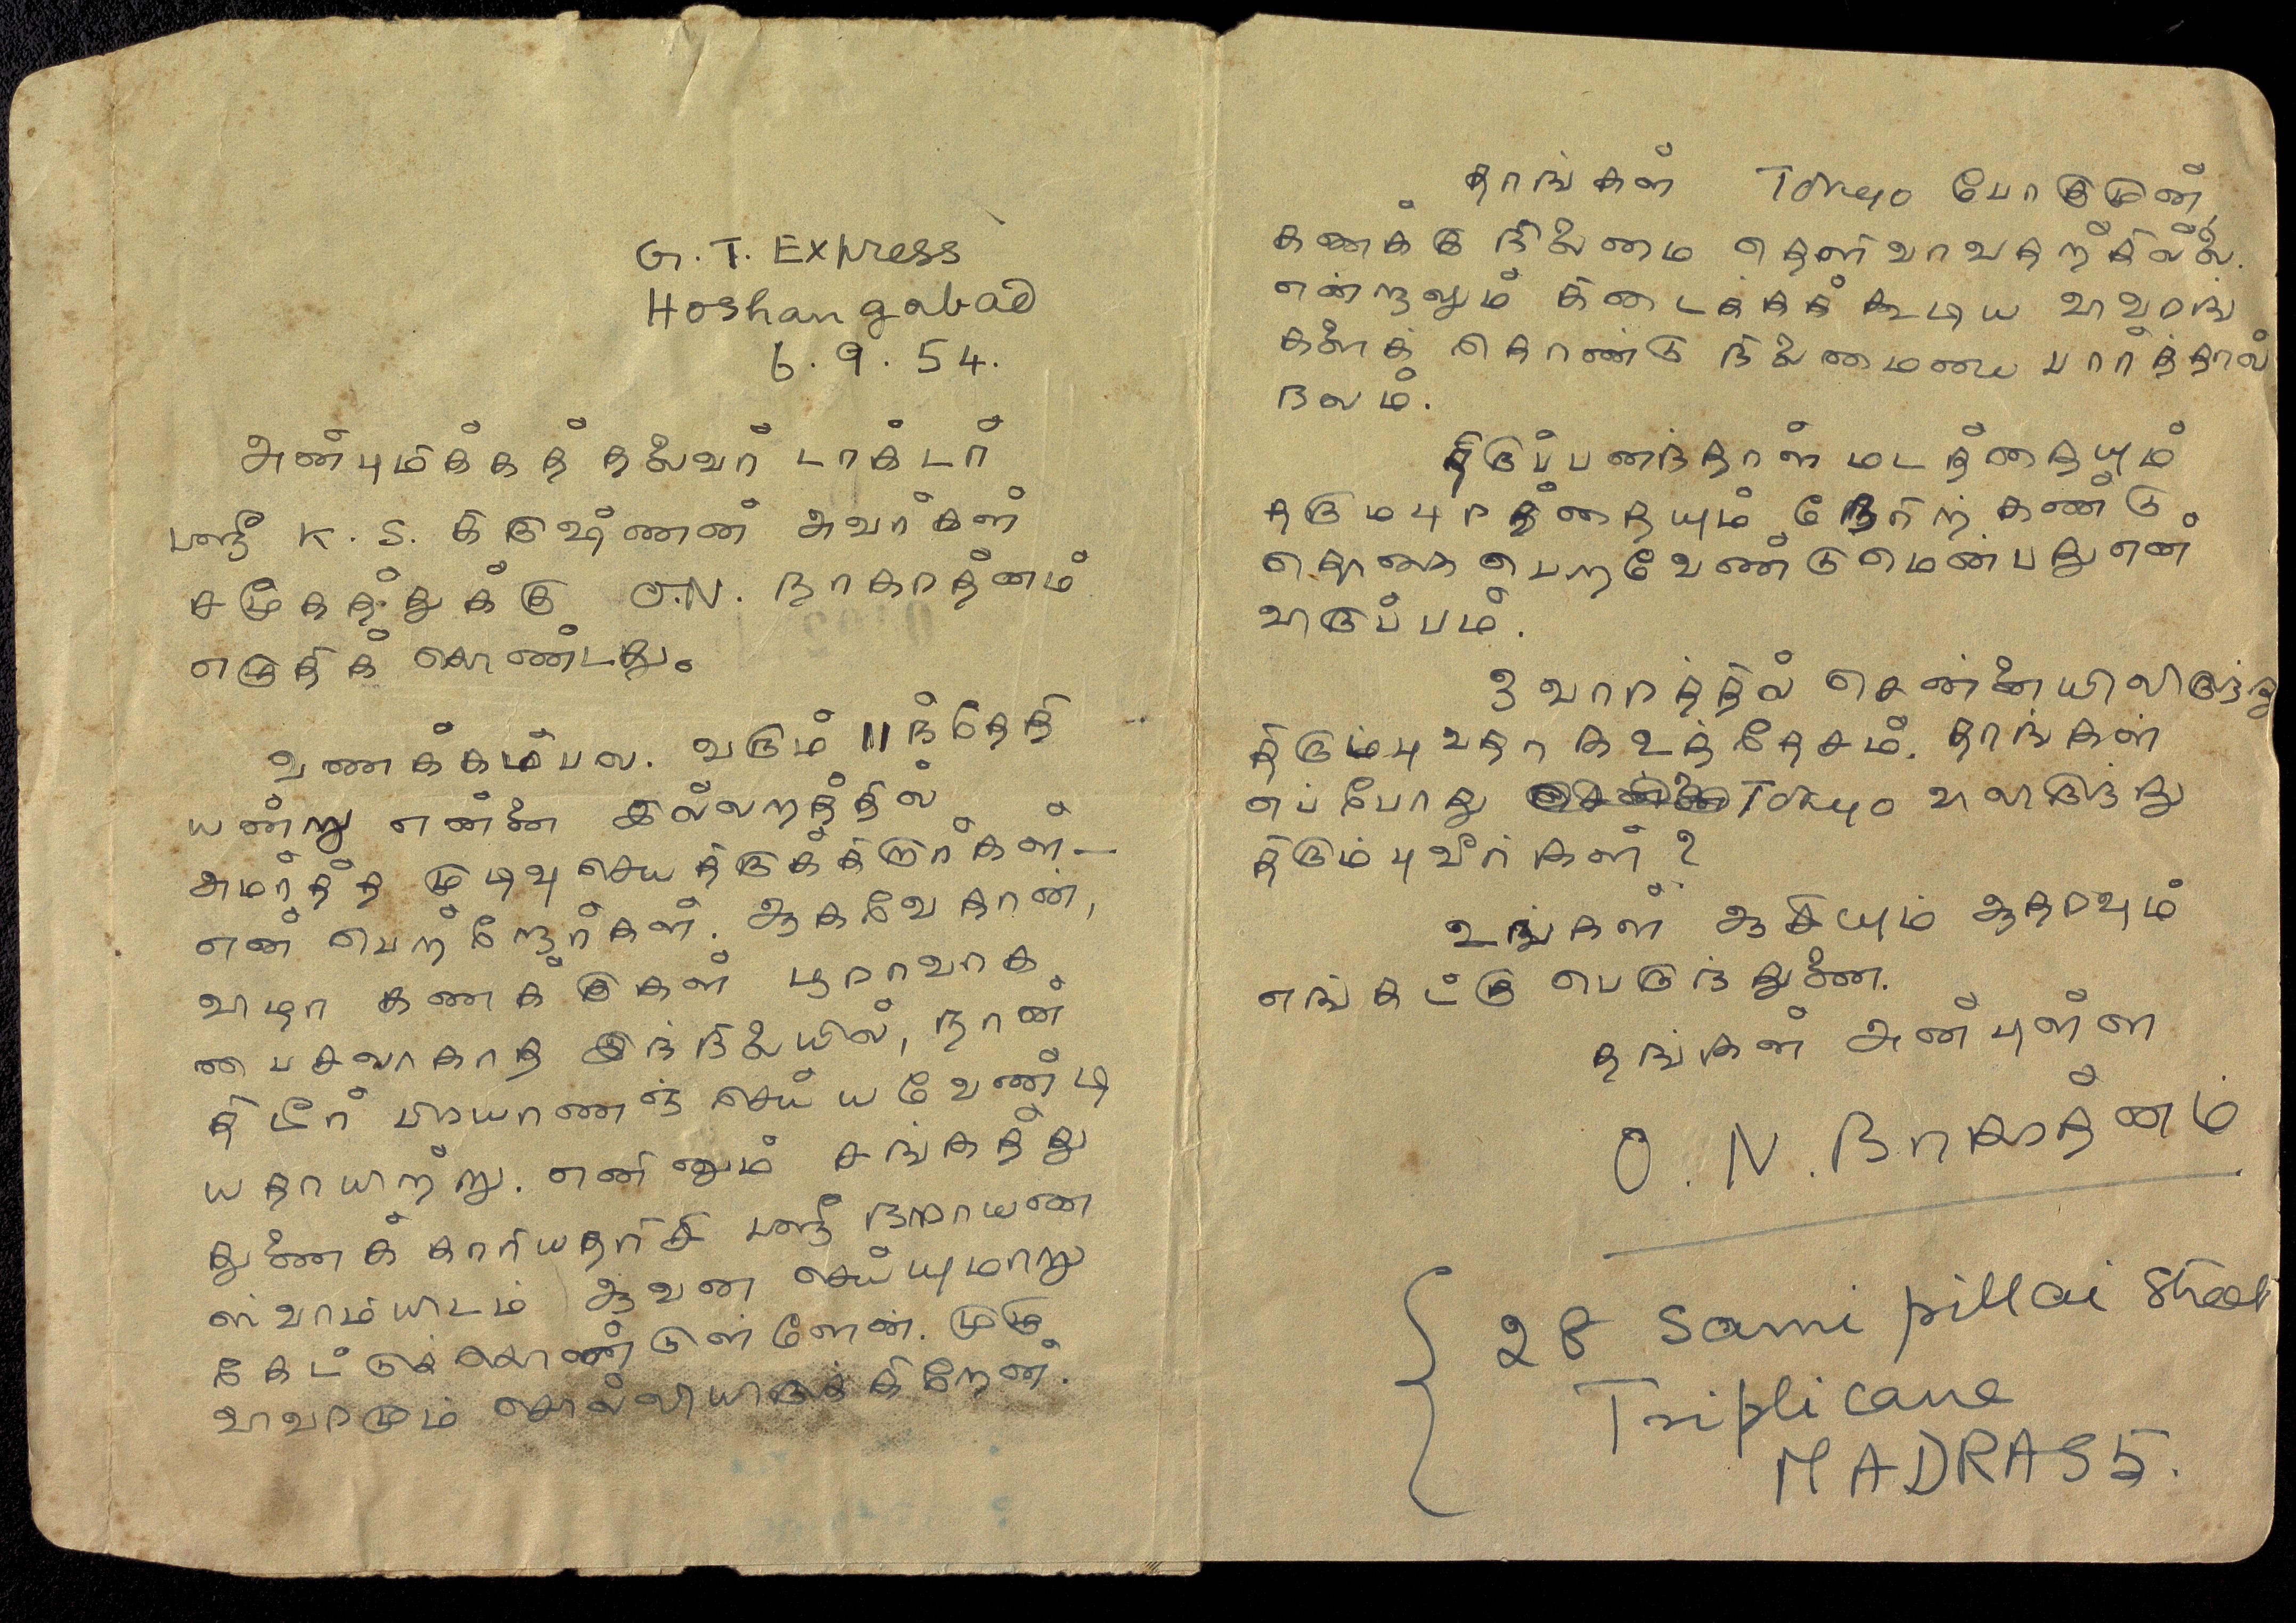 G. T. Express
Hoshangabad
6. 9. 54.
அன்புமிக்கத் தலைவர் டாக்டர்
ஸ்ரீ K. S. கிருஷ்ணன் அவர்கள்
சமூகத்துக்கு O.N. நாகரத்னம்
எழுதிக் கொண்டது.
வணக்கம்பல. வரும் 11ந்தேதி
யன்று என்னை இல்லறத்தில்
அமர்த்த முடிவு செய்திருக்கிறார்கள் —
என் பெற்றோர்கள். ஆகவேதான்,
விழா கணக்குகள் பூராவாக
பைசலாகாத இந்நிலையில், நான்
திடீர் பிரயாணஞ் செய்யவேண்டி
யதாயிற்று. எனினும் சங்கத்து
துணைக் காரியதரிசி ஸ்ரீ நாராயண
ஸ்வாமியிடம் ஆவன செய்யுமாறு
கேட்டுக்கொண்டுள்ளேன். முழு
விவரமும் சொல்லியிருக்கிறேன்.
தாங்கள் Tokyo போகுமுன்,
கணக்கு நிலைமை தெளிவாவதற்கில்லை.
என்றாலும் கிடைக்கக் கூடிய விவரங்
களைக் கொண்டு நிலைமையை பார்த்தால்
நலம்.
திருப்பனந்தாள் மடத்தையும்
தருமபுரத்தையும் நேரிற் கண்டு
தொகை பெறவேண்டுமென்பது என்
விருப்பம்.
3 வாரத்தில் சென்னையிலிருந்து
திரும்புவதாக உத்தேசம். தாங்கள்
எப்போது Tokyo விலிருந்து
திரும்புவீர்கள்?
உங்கள் ஆசியும் ஆதரவும்
எங்கட்கு பெருந்துணை.
தங்கள் அன்புள்ள
O. N. நாகரத்னம்
28 Sami pillai Street
Triplicane
MADRAS 5.